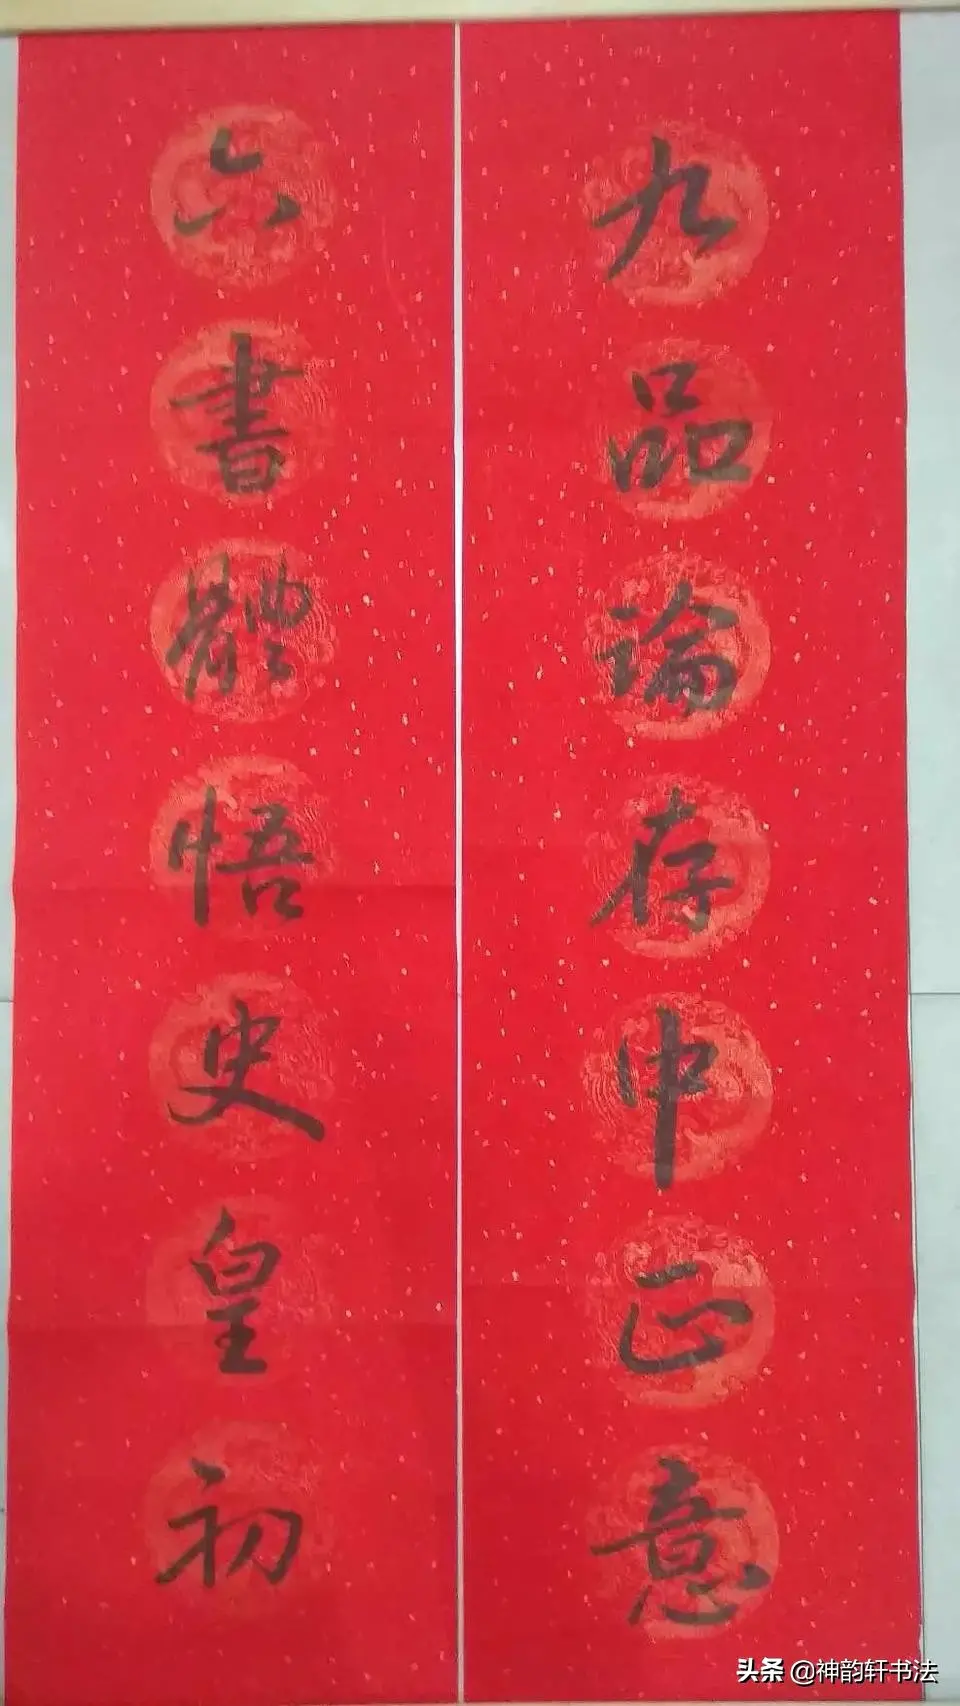 九品論存中正意
六書體悟史皇初
头条 @神韵轩书法